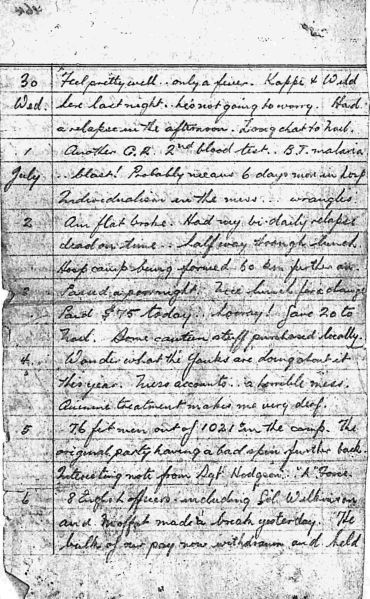 30 Feel pretty well.. only a fever. Kappe & Wild
Wed. here last night.. he's not going to worry. Had
a relapse in the afternoon. Long chat to
1 Another O.R. 2nd blood test. B.T. malaria
July .. blast! Probably means 6 days more in hosp
Individualism in the mess... wrangles
2 Am flat broke. Had my bi-daily relapse
dead on time.. half way through lunch.
Hosp camp being formed 60 km further on.
3 Passed a poor night. Nice lunch for a change
Paid $75 today.. hooray! Gave 20 to
Some canteen stuff purchased locally.
4 Wonder what the Yanks are doing about it
this year. Mess accounts.. a horrible mess.
Quinine treatment makes me very deaf.
5 76 fit men out of 1021 in the camp. The
original party having a bad spin further back.
Interesting note from Sgt Hodgson.. "A" Force.
6 8 English officers.. including Col. Wilkinson
and Moffat made a break yesterday. The
bulk of our pay now withdrawn and held